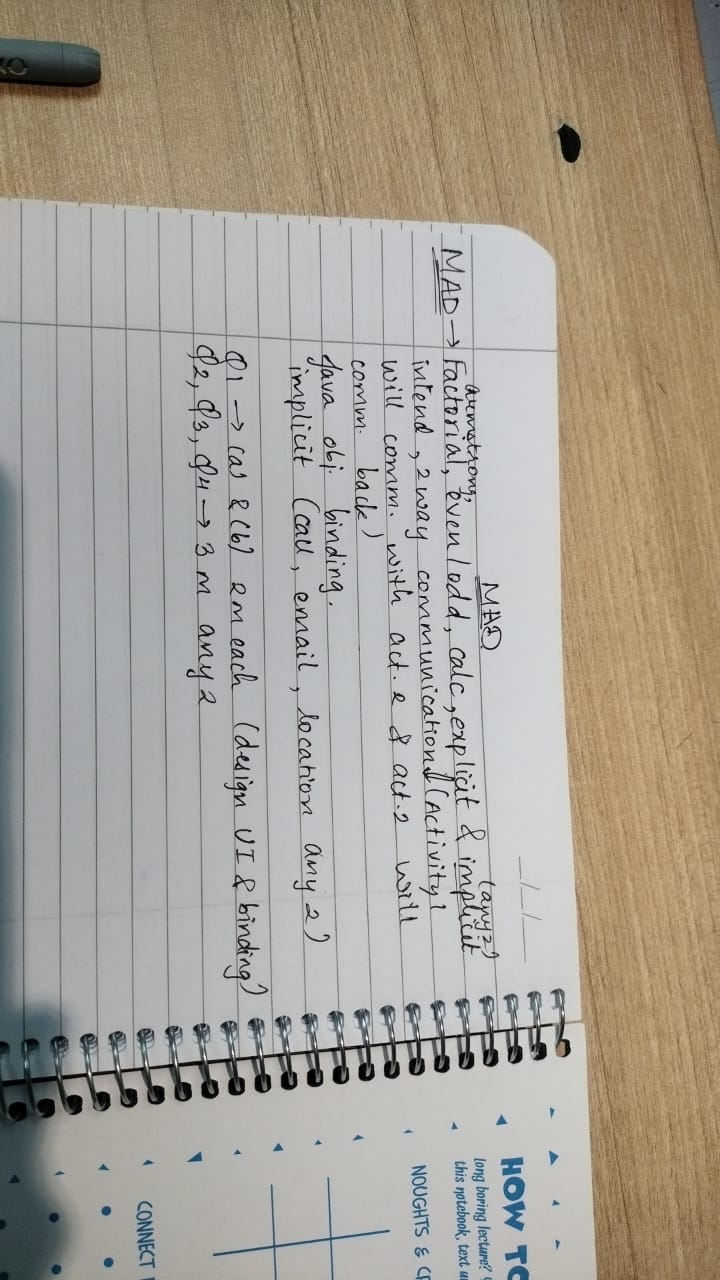 MAD
MAD → Factorial, armstrong, even/odd, calc, explicit & implicit (any 2)
intend, 2 way communication (Activity 1
will comm. with act. 2 & act. 2 will
comm. back)
Java obj. binding.
implicit (call, email, location any 2)
Q1 → (a) & (b) 2m each (design UI & binding)
Q2, Q3, Q4 → 3 m any 2
HOW TO
long boring lecture?
this notebook, text
NOUGHTS &
CONNECT